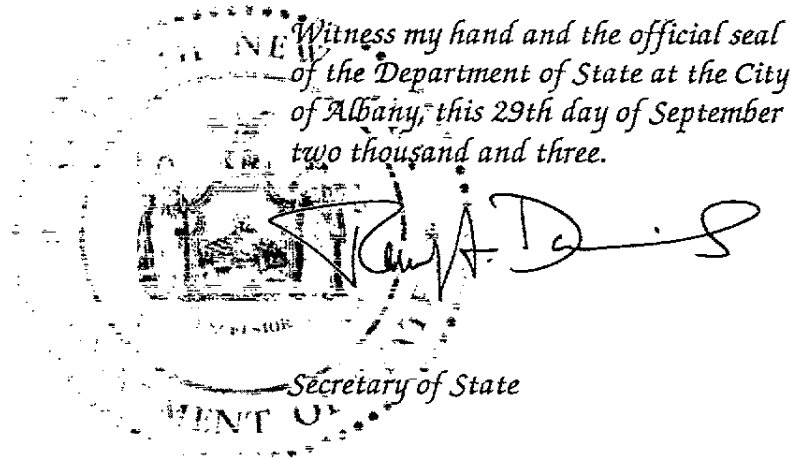 NEW
Witness my hand and the official seal
of the Department of State at the City
of Albany, this 29th day of September
two thousand and three.
Randy A. Daniels
Secretary of State